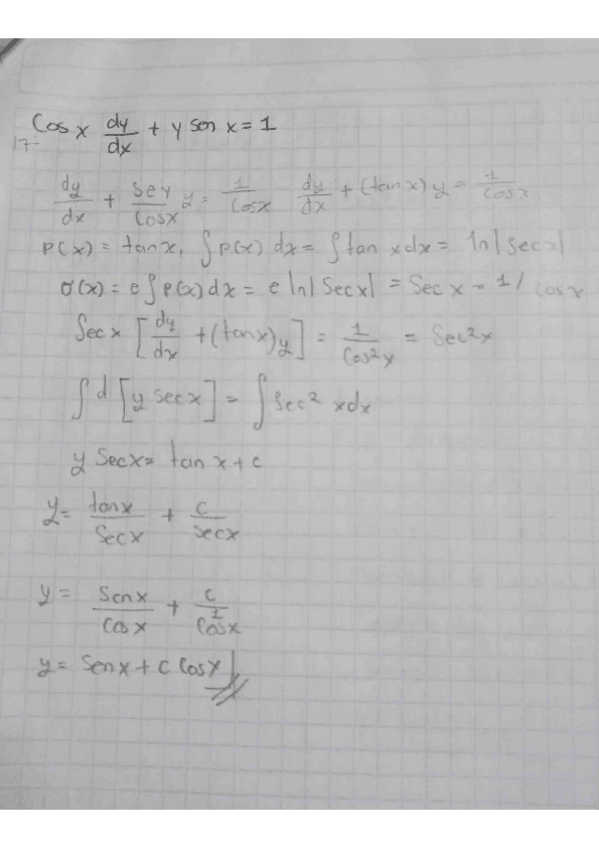 17- Cos x dy/dx + y sen x = 1
dy/dx + sex/Cosx y = 1/Cosx   dy/dx + (tan x) y = 1/Cosx
p(x) = tanx, ∫ p(x) dx = ∫ tan xdx = ln|secx|
σ(x) = e ∫ p(x) dx = e ln|Secx| = Sec x = 1/cosx
Sec x [dy/dx + (tanx) y] = 1/Cos²x = Sec²x
∫ d [y secx] = ∫ Sec² xdx
y Secx = tan x + c
y = tanx/Secx + c/secx
y = Senx/Cosx + c/(1/Cosx)
y = Senx + c Cosx